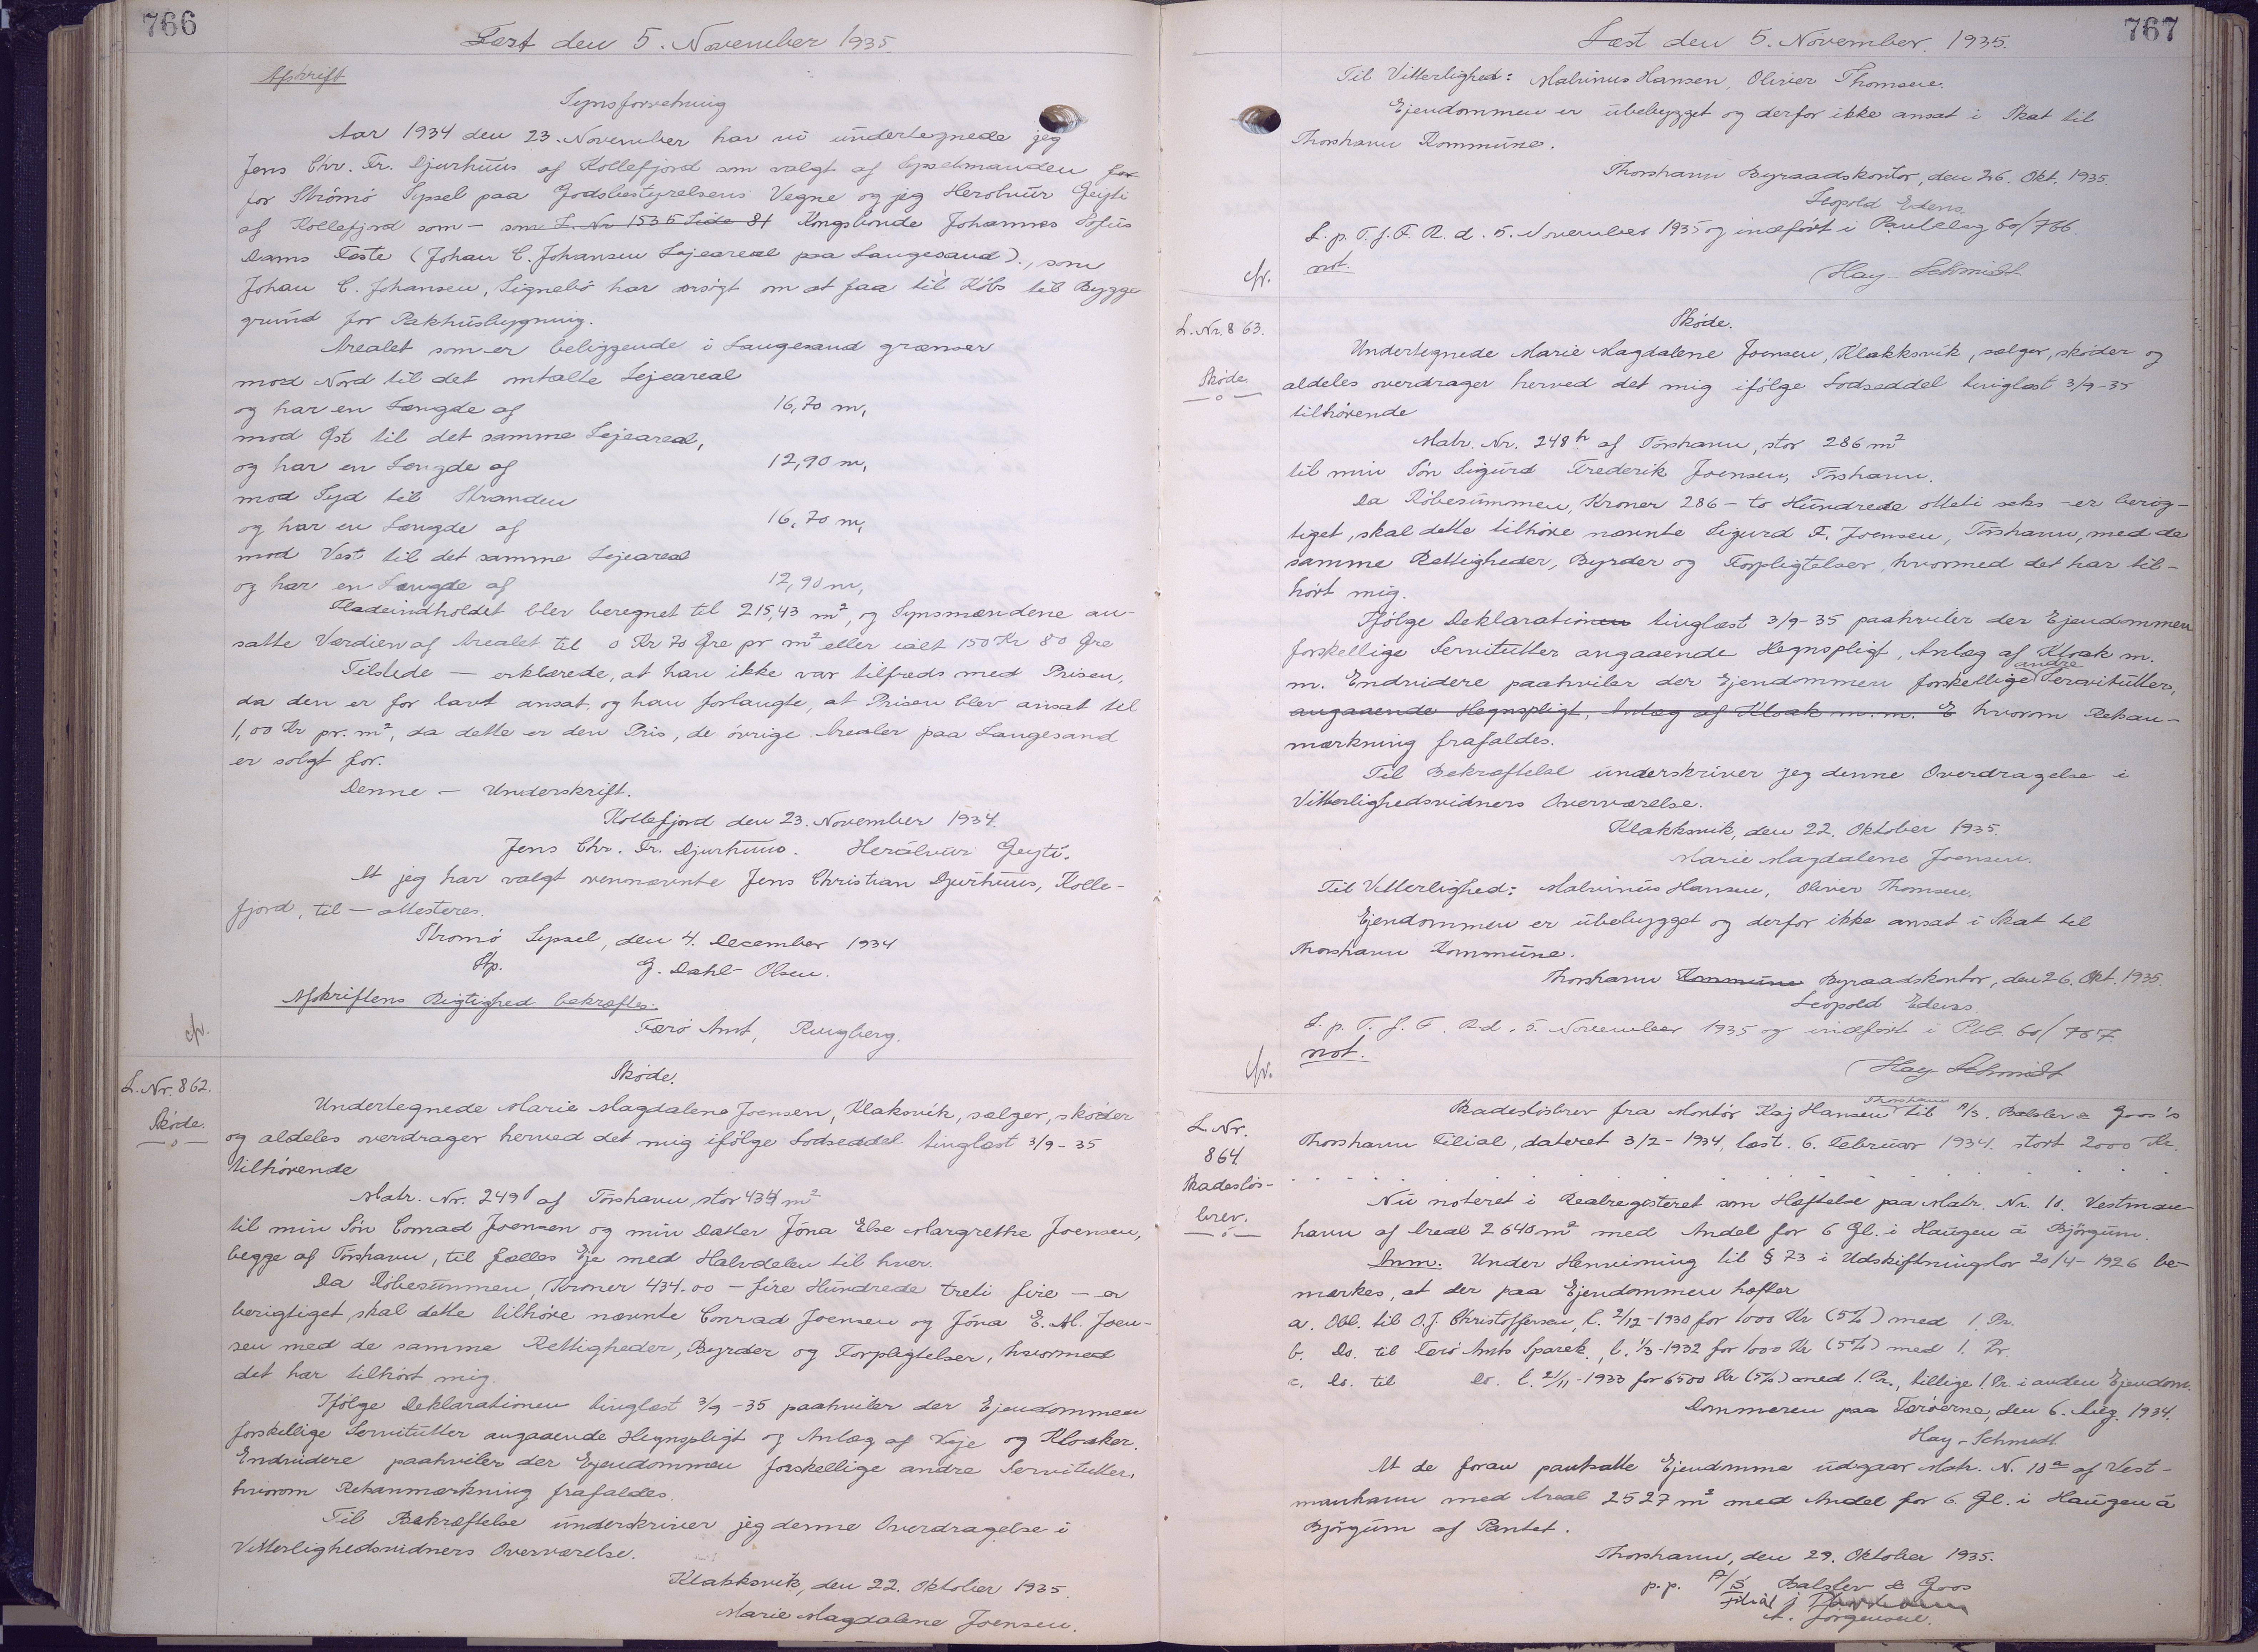 766
Læst den 5. November 1935
Afskrift
Synsforretning
Aar 1934 den 23. November har vi undertegnede jeg
Jens Chr. Fr. Djurhuus af Kollefjord som valgt af Sysselmanden for
for Strömö Syssel paa Godsbestyrelsens Vegne og jeg Herálvur Geyti
af Kollefjord som — som L. Nr 1535 Side 81 Kongsbonde Johannes Sofus
Dams Fæste (Johan C. Johansen Lejeareal paa Langesand)., som
Johan C. Johansen, Signebö har ansögt om at faa til Köbs til Bygge
grund for Pakhusbygning.
Arealet som er beliggende i Langesand grænser
mod Nord til det omtalte Lejeareal
og har en Længde af 16,70 m,
mod Øst til det samme Lejeareal,
og har en Længde af 12,90 m,
mod Syd til Stranden
og har en Længde af 16,70 m,
mod Vest til det samme Lejeareal
og har en Længde af 12,90 m,
Fladeindholdet blev beregnet til 215,43 m², og Synsmændene an-
satte Værdien af Arealet til 0 Kr 70 Øre pr m² eller ialt 150 Kr 80 Øre
Tilstede — erklærede, at han ikke var tilfreds med Prisen,
da den er for lavt ansat, og han forlangte, at Prisen blev ansat til
1,00 Kr pr. m², da dette er den Pris, de övrige Arealer paa Langesand
er solgt for.
Denne — Underskrift.
Kollefjord den 23. November 1934.
Jens Chr. Fr. Djurhuus. Herálvur Geyti.
At jeg har valgt ovennævnte Jens Christian Djurhuus, Kolle-
fjord, til — attesteres.
Strömö Syssel, den 4. December 1934
Stp. G. Dahl-Olsen.
Afskriftens Rigtighed bekræftes:
Færö Amt, Ringberg.
cfr.
L. Nr. 862.
Sköde.
Sköde.
Undertegnede Marie Magdalene Joensen, Klaksvik, sælger, sköder
og aldeles overdrager herved det mig ifölge Lodseddel tinglæst 3/9-35
tilhörende
Matr. Nr. 249 af Tórshavn, stor 434 m²
til min Sön Conrad Joensen og min Datter Jóna Else Margrethe Joensen,
begge af Tórshavn, til fælles Eje med Halvdelen til hver.
Da Köbesummen, Kroner 434.00 — fire Hundrede treti fire — er
berigtiget, skal dette tilhöre nævnte Conrad Joensen og Jóna E. M. Joen-
sen med de samme Rettigheder, Byrder og Forpligtelser, hvormed
det har tilhört mig.
Ifölge Deklarationen tinglæst 3/9-35 paahviler der Ejendommen
forskellige Servitutter angaaende Hegnspligt og Anlæg af Veje og Kloaker.
Endvidere paahviler der Ejendommen forskellige andre Servitutter,
hvorom Retsanmærkning frafaldes.
Til Bekræftelse underskriver jeg denne Overdragelse i
Vitterlighedsvidners Overværelse.
Klakksvik, den 22. Oktober 1935.
Marie Magdalene Joensen.
767
Læst den 5. November 1935.
Til Vitterlighed: Malvinus Hansen, Oliver Thomsen.
Ejendommen er ubebygget og derfor ikke ansat i Skat til
Thorshavn Kommune.
Thorshavn Byraadskontor, den 26. Okt. 1935.
Leopold Edens.
L. p. T. f. F. R. d. 5. November 1935 og indfört i Pantebog 60/766.
not.
cfr.
Hay-Schmidt
L. Nr. 863.
Sköde.
Sköde.
Undertegnede Marie Magdalene Joensen, Klakksvik, sælger, sköder og
aldeles overdrager herved det mig ifölge Lodseddel tinglæst 3/9-35
tilhörende
Matr. Nr. 248 h af Tórshavn, stor 286 m²
til min Sön Sigurd Frederik Joensen, Tórshavn.
Da Köbesummen, Kroner 286 — to Hundrede otteti seks — er berig-
tiget, skal dette tilhöre nævnte Sigurd F. Joensen, Tórshavn, med de
samme Rettigheder, Byrder og Forpligtelser, hvormed det har til-
hört mig.
Ifölge Deklarationen tinglæst 3/9-35 paahviler der Ejendommen
forskellige Servitutter angaaende Hegnspligt, Anlæg af Kloak m.
m. Endvidere paahviler der Ejendommen forskellige andre Servitutter,
angaaende Hegnspligt, Anlæg af Kloak m. m. E hvorom Retsan-
mærkning frafaldes.
Til Bekræftelse underskriver jeg denne Overdragelse i
Vitterlighedsvidners Overværelse.
Klakksvik, den 22. Oktober 1935.
Marie Magdalene Joensen.
Til Vitterlighed: Malvinus Hansen, Oliver Thomsen.
Ejendommen er ubebygget og derfor ikke ansat i Skat til
Thorshavn Kommune.
Thorshavn Kommune Byraadskontor, den 26. Okt. 1935.
Leopold Edens.
L. p. T. f. F. R. d. 5. November 1935 og indfört i Ptb. 60/767
not.
cfr.
Hay-Schmidt
L. Nr.
864.
Skadeslös-
brev.
Skadeslösbrev fra Montör Kaj Hansen Thorshavn til A/S. Balslev & Goos's
Thorshavn Filial, dateret 3/2-1934, læst. 6. Februar 1934. stort 2000 Kr.
Nu noteret i Realregisteret som Hæftelse paa Matr. Nr. 10. Vestman-
havn af Areal 2640 m² med Andel for 6 Gl. i Haugen á Björgum.
Anm. Under Henvisning til § 73 i Udskiftningslov 20/4-1926 be-
mærkes, at der paa Ejendommen hæfter
a. Obl. til O. J. Christoffersen, l. 2/12-1930 for 1000 Kr (5%) med 1. Pr.
b. Do. til Færö Amts Sparek., l. 1/3-1932 for 1000 Kr (5%) med 1. Pr.
c. Do. til Do. l. 21/11-1933 for 6500 Kr (5%) med 1. Pr., tillige 1. Pr. i anden Ejendom.
Dommeren paa Færöerne, den 6. Aug. 1934.
Hay-Schmidt.
At de foran pantsatte Ejendomme udgaar Matr. N. 10a af Vest-
manhavn med Areal 2527 m² med Andel for 6. Gl. i Haugen á
Björgum af Pantet.
Thorshavn, den 29. Oktober 1935.
p. p. A/S Balslev & Goos
Filial i Thorshavn
A. Jörgensen.